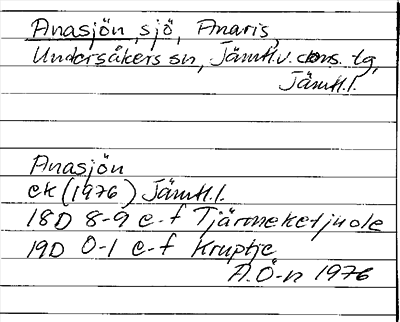 Anasjön, sjö, Anaris,
Undersåkers sn, Jämtl.v. doms. tg,
Jämtl.l.
Anasjön
ek (1976) Jämtl.l.
18D 8-9 e-f Tjärmeketjuole
19D 0-1 e-f Kruptje
A.Ö-n 1976